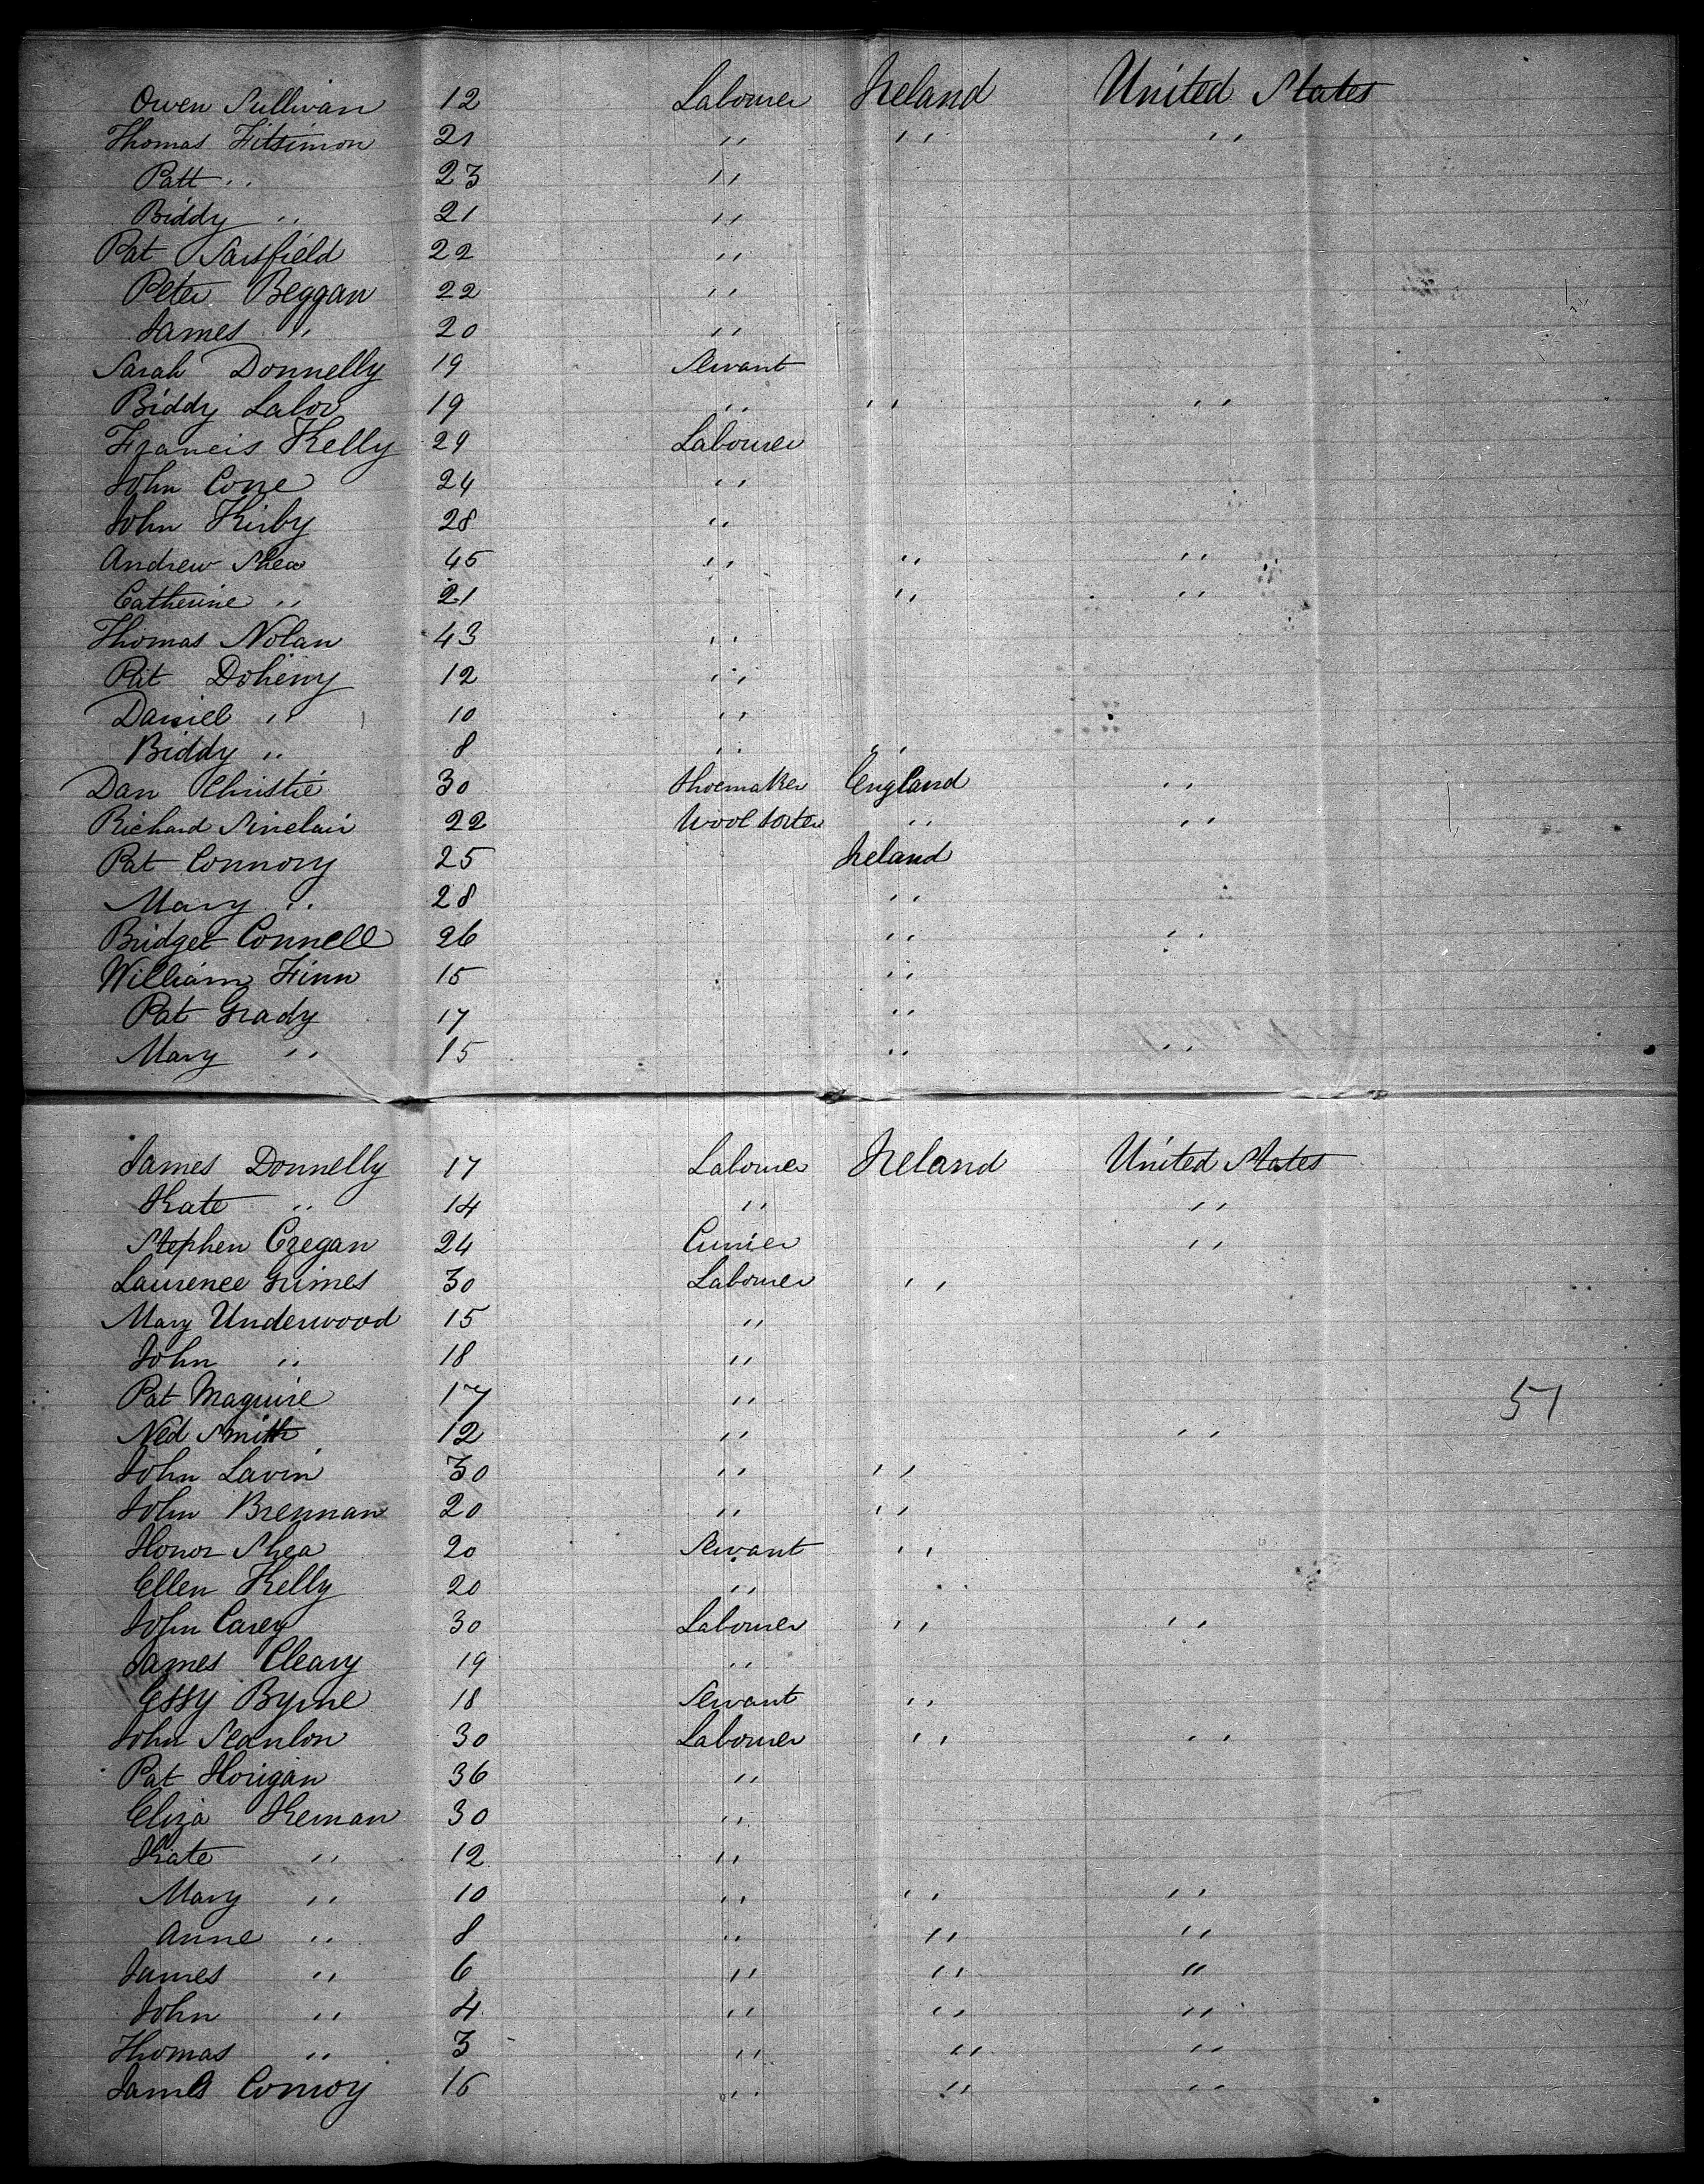 Owen Sullivan 12 Labourer Ireland United States
Thomas Fitsimon 21 " " "
Patt " 23 "
Biddy " 21 "
Pat Sarsfield 22 "
Peter Beggan 22 "
James " 20 "
Sarah Donnelly 19 Servant
Biddy Lalor 19 " " "
Francis Kelly 29 Labourer
John Cone 24 "
John Kirby 28 "
Andrew Shea 45 " " "
Catherine " 21 " "
Thomas Nolan 43 "
Pat Doheny 12 "
Daniel " 10 "
Biddy " 8 " "
Dan Christie 30 Shoemaker England "
Richard Sinclair 22 Wool Sorter " "
Pat Connory 25 Ireland
Mary " 28 "
Bridget Connell 26 " "
William Finn 15 "
Pat Grady 17 "
Mary " 15 " "
James Donnelly 17 Labourer Ireland United States
Kate " 14 " "
Stephen Cregan 24 Currier "
Laurence Grimes 30 Labourer "
Mary Underwood 15 "
John " 18 "
Pat Maguire 17 "
51
Ned Smith 12 " "
John Lavin 30 " "
John Brennan 20 " "
Honor Shea 20 Servant "
Ellen Kelly 20 " "
John Carey 30 Labourer " "
James Cleary 19 "
Essy Byrne 18 Servant "
John Scanlon 30 Labourer " "
Pat Horigan 36 "
Eliza Kernan 30 "
Kate " 12 "
Mary " 10 " " "
Anne " 8 " " "
James " 6 " " "
John " 4 " " "
Thomas " 3 " " "
James Conroy 16 " " "